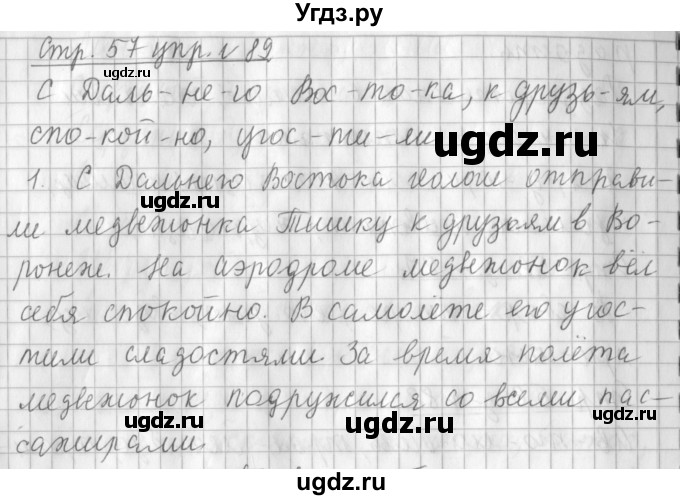 Угдз.ру
Стр. 57 упр. № 89
С Даль-не-го Вос-то-ка, к друзь-ям,
спо-кой-но, угос-ти-ли
1. С Дальнего Востока геологи отправи-
ли медвежонка Тишку к друзьям в Во-
ронеж. На аэродроме медвежонок вёл
себя спокойно. В самолёте его угос-
тили сладостями. За время полёта
медвежонок подружился со всеми пас-
сажирами.
ugdz.ru
ugdz.ru
ugdz.ru
ugdz.ru
ugdz.ru
ugdz.ru
ugdz.ru
ugdz.ru
ugdz.ru
ugdz.ru